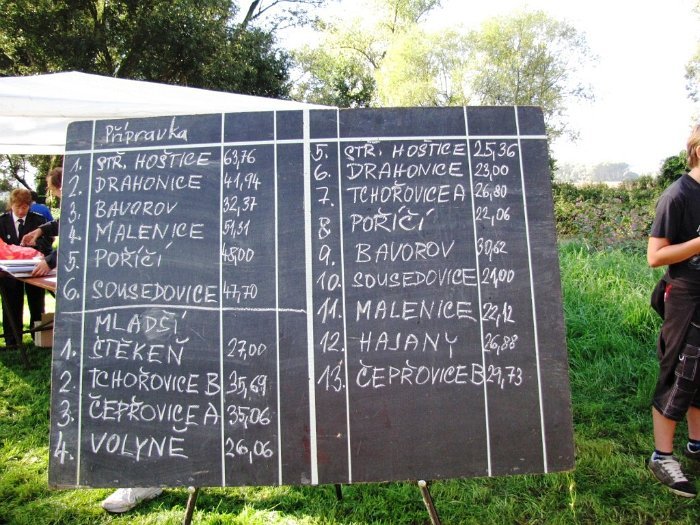 Přípravka
1. STŘ. HOŠTICE 63,76
2. DRAHONICE 41,94
3. BAVOROV 32,37
4. MALENICE 51,31
5. POŘÍČÍ 48,00
6. SOUSEDOVICE 47,70
MLADŠÍ
1. ŠTĚKEŇ 27,00
2. TCHOŘOVICE B 35,69
3. ČEPŘOVICE A 35,06
4. VOLYNĚ 26,06
5. STŘ. HOŠTICE 25,36
6. DRAHONICE 23,00
7. TCHOŘOVICE A 26,80
8 POŘÍČÍ 22,06
9. BAVOROV 30,62
10. SOUSEDOVICE 21,00
11. MALENICE 22,12
12. HAJANY 26,88
13. ČEPŘOVICE B 29,73